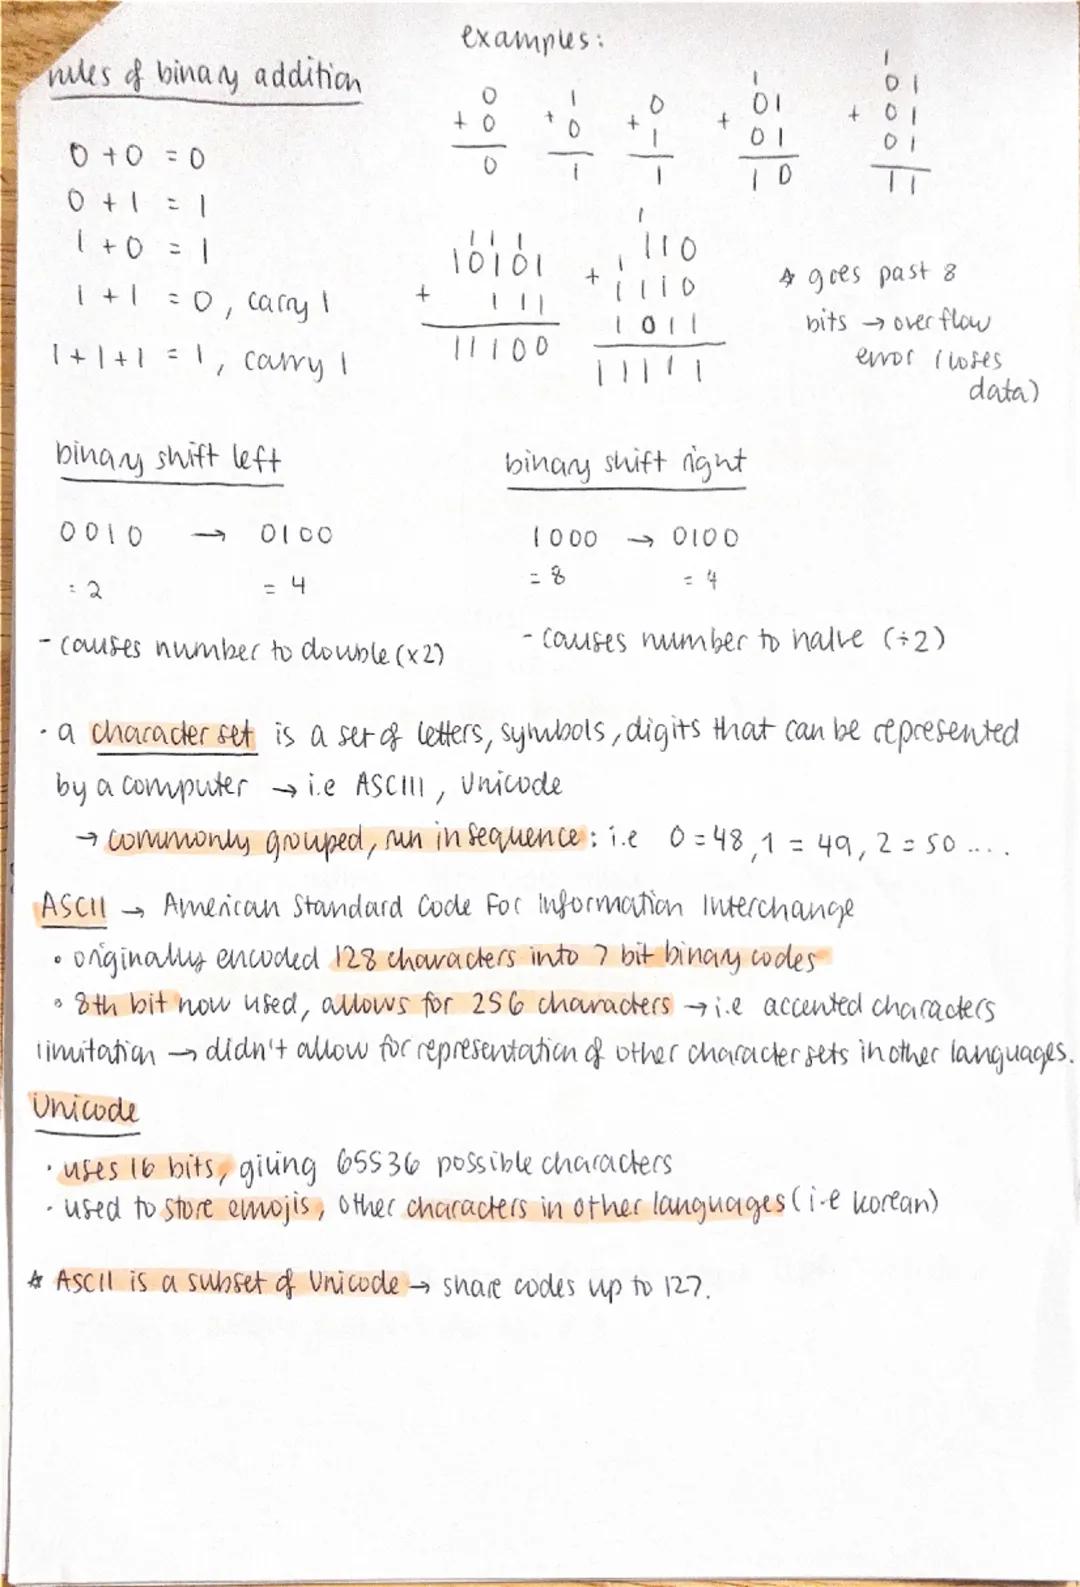 examples:
rules of binary addition
0 + 0 = 0
0 + 1 = 1
1 + 0 = 1
1 + 1 = 0, carry 1
1 + 1 + 1 = 1, carry 1
0
+ 0
0
1
+ 0
1
0
+ 1
1
1
01
+ 01
10
1
01
+ 01
01
11
111
10101
+ 111
11100
1
1 110
+ 1110
1011
11111
☆ goes past 8
bits → overflow
error (loses
data)
binary shift left
0010 → 0100
= 2 = 4
- causes number to double (×2)
binary shift right
1000 → 0100
= 8 = 4
- causes number to halve (÷2)
· a character set is a set of letters, symbols, digits that can be represented
by a computer → i.e ASCIII, Unicode
→ commonly grouped, run in sequence: i.e 0 = 48, 1 = 49, 2 = 50 ....
ASCII → American Standard Code For Information Interchange
• originally encoded 128 characters into 7 bit binary codes
• 8th bit now used, allows for 256 characters → i.e accented characters
limitation → didn't allow for representation of other character sets in other languages.
Unicode
· uses 16 bits, giving 65536 possible characters
· used to store emojis, other characters in other languages (i.e korean)
☆ ASCII is a subset of Unicode → share codes up to 127.